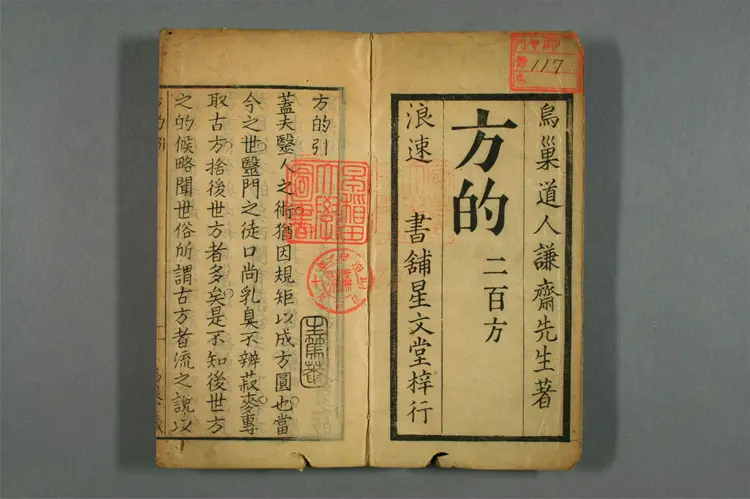 烏巢道人謙齋先生著
方的
二百方
浪速 書舖星文堂梓行
117
方的引
蓋夫毉人之術猶因規矩以成方圓也當
今之世毉門之徒口尚乳臭不辨菽麥專
取古方捨後世方者多矣是不知後世方
之的候略聞世俗所謂古方者流之說以
早稻田大學圖書